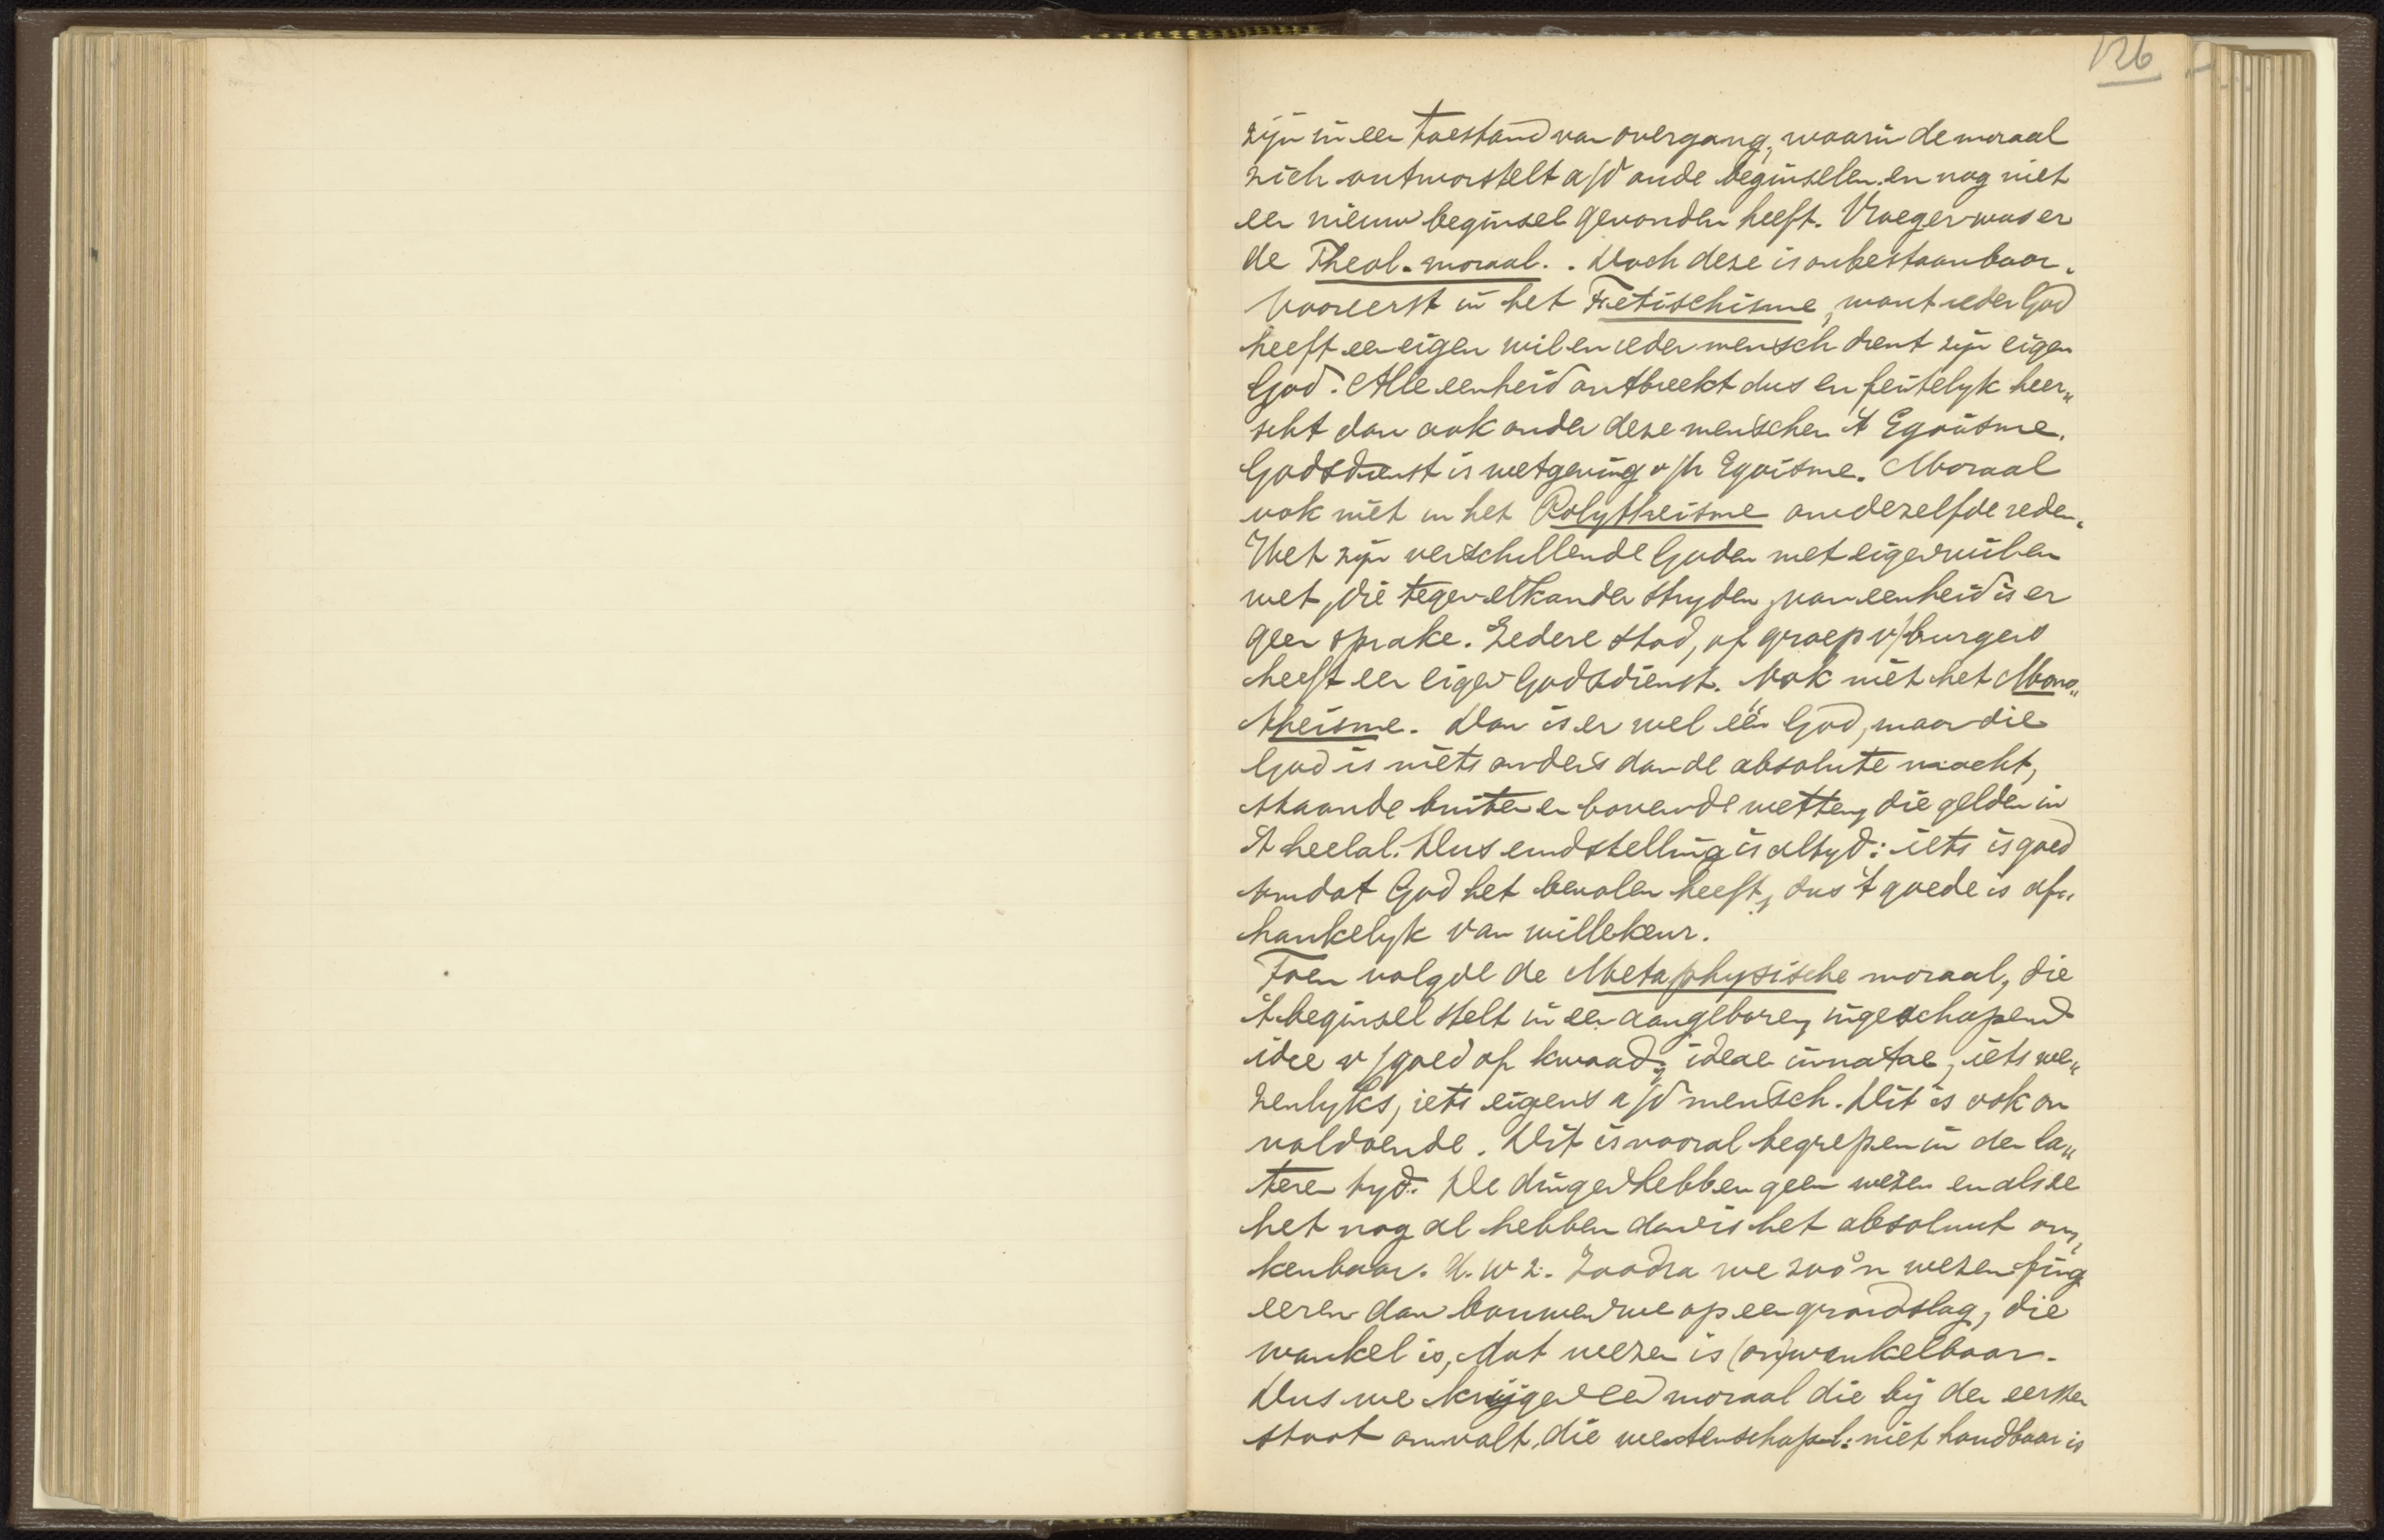 126
zijn in een toestand van overgang, waarin de moraal
zich ontworstelt a/d oude beginselen en nog niet
een nieuw beginsel gevonden heeft. Vroeger was er
de Theol. moraal. . Doch deze is onbestaanbaar.
Vooreerst in het Fetischisme, want ieder God
heeft een eigen wil en ieder mensch dient zijn eigen
God. Alle eenheid ontbreekt dus en feitelyk heer„
scht dan ook onder deze menschen 't Egoïsme.
Godsdienst is wetgeving v/h Egoisme. Moraal
ook niet in het Polytheisme om dezelfde reden.
Het zijn verschillende Goden met eigen wil en
wet, die tegen elkander stryden, van eenheid is er
geen sprake. Iedere stad, of groep v/burgers
heeft een eigen Godsdienst. Ook niet het Mono„
theisme. Dan is er wel één God, maar die
God is niets anders dan de absolute macht,
staande buiten en boven de wetten, die gelden in
't heelal. Dus eindstelling is altyd: iets is goed
omdat God het bevolen heeft, dus 't goede is af„
hankelyk van willekeur.
Toen volgde de Metaphysische moraal, die
't beginsel stelt in een aangeboren, ingeschapen
idee v/goed of kwaad; ideae innatae, iets we„
zenlyks, iets eigens a/d mensch. Dit is ook on
voldoende. Dit is vooral begrepen in den la„
teren tyd. De dingen hebben geen wezen en als ze
het nog al hebben dan is het absoluut on„
kenbaar. D.w.z. Zoodra we zoo'n wezen fing
eeren dan bouwen we op een grondslag, die
wankel is, dat wezen is (on)wankelbaar.
Dus we krijgen een moraal die bij den eersten
stoot omvalt, die wetenschapl: niet houdbaar is